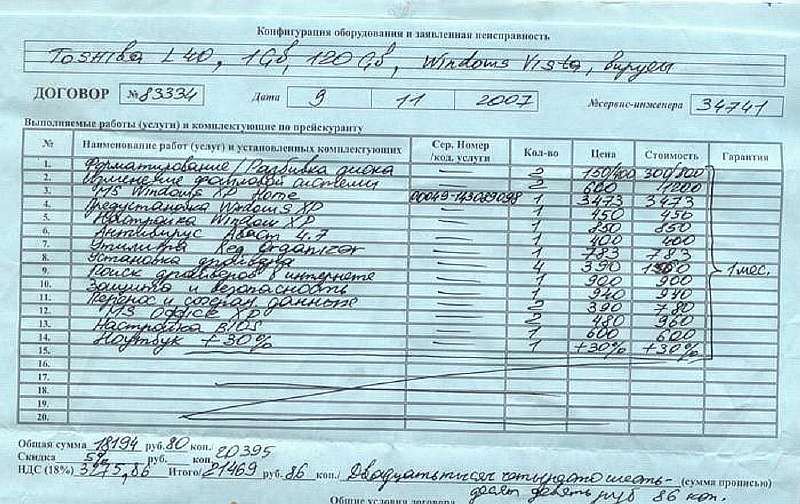 Конфигурация оборудования и заявленная неисправность
Toshiba L40, 1Gб, 120Gб, Windows Vista, вирусы
ДОГОВОР №83334 Дата 9 11 2007 №сервис-инженера 34741
Выполняемые работы (услуги) и комплектующие по прейскуранту
№ Наименование работ (услуг) и установленных комплектующих Сер. Номер /код. услуги Кол-во Цена Стоимость Гарантия
1. Форматирование/Разбивка диска — 2 150/400 300/800
2. Изменение файловой системы — 2 600 1200
3. MS Windows XP Home 00049-143089098 1 3473 3473
4. Предустановка Windows XP — 1 450 450
5. Настройка Windows XP — 1 850 850
6. Антивирус Аваст 4.7 — 1 400 400
7. Утилита Reg Organizer — 1 783 783
8. Установка драйвера — 4 390 1560 1 мес.
9. Поиск драйверов в интернете — 1 900 900
10. Защита и безопасность — 1 940 940
11. Перенос и сохран данных — 2 390 780
12. MS Office XP — 2 480 960
13. Настройка BIOS — 1 600 600
14. Ноутбук +30% 1 +30% +30%
15.
16.
17.
18.
19.
20.
Общая сумма 18194 руб. 80 коп./ 20395
Скидка 5% руб. коп.
НДС (18%) 3275,86 Итого/ 21469 руб. 86 коп./ Двадцать тысяч четыреста шесть- (сумма прописью)
десят девять руб 86 коп.
Общие условия договора